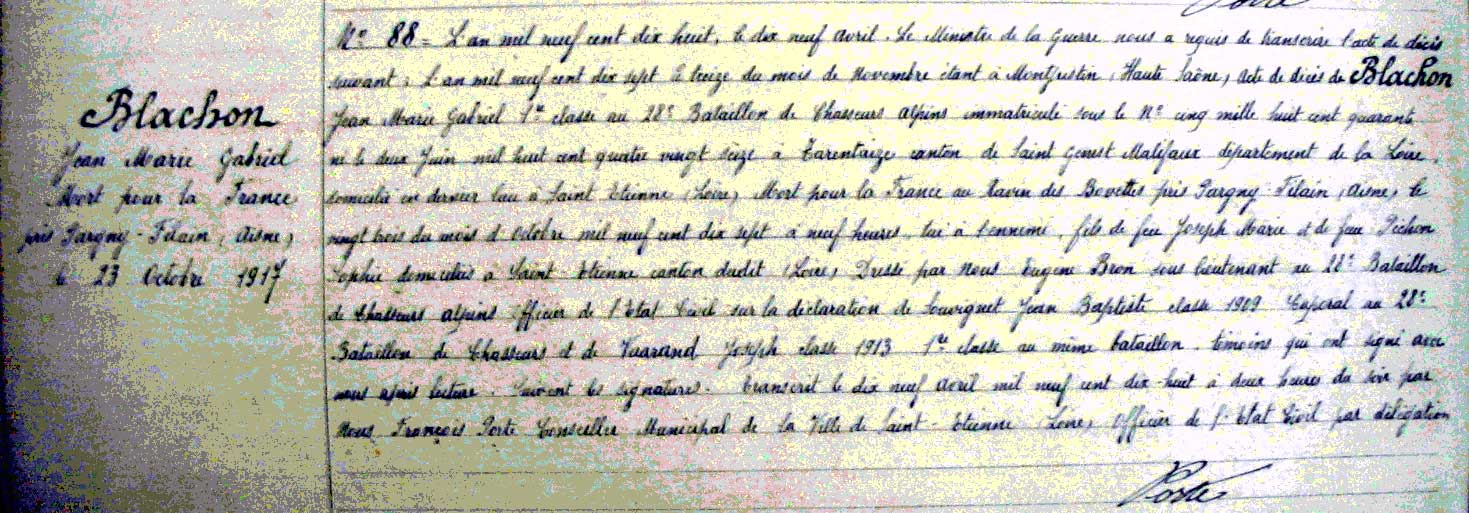 Porte
Blachon
Jean Marie Gabriel
Mort pour la France
près Pargny-Filain (Aisne)
le 23 Octobre 1917
N° 88 = L'an mil neuf cent dix huit, le dix neuf avril. Le Ministre de la Guerre nous a requis de transcrire l'acte de décès
suivant : L'an mil neuf cent dix sept le treize du mois de Novembre étant à Montjustin (Haute Saône) acte de décès de Blachon
Jean Marie Gabriel 1re classe au 28e Bataillon de Chasseurs alpins immatriculé sous le N° cinq mille huit cent quarante
né le deux Juin mil huit cent quatre vingt seize à Tarentaize canton de Saint Genest Malifaux département de la Loire,
domicilié en dernier lieu à Saint Etienne (Loire) Mort pour la France au Ravin des Bovettes près Pargny-Filain (Aisne) le
vingt trois du mois d'Octobre mil neuf cent dix sept à neuf heures, tué à l'ennemi, fils de feu Joseph Marie et de feue Pichon
Sophie domiciliés à Saint-Etienne canton dudit (Loire) Dressé par Nous Eugène Bron sous lieutenant au 28e Bataillon
de Chasseurs alpins Officier de l'Etat Civil sur la déclaration de Souvignet Jean Baptiste classe 1909 Caporal au 28e
Bataillon de Chasseurs et de Joseph classe 1913 1re classe au même bataillon, témoins qui ont signé avec
nous après lecture. Suivent les signatures. Transcrit le dix neuf avril mil neuf cent dix-huit à deux heures du soir par
Nous François Porte Conseiller Municipal de la Ville de Saint-Etienne (Loire) Officier de l'Etat Civil par délégation
Porte